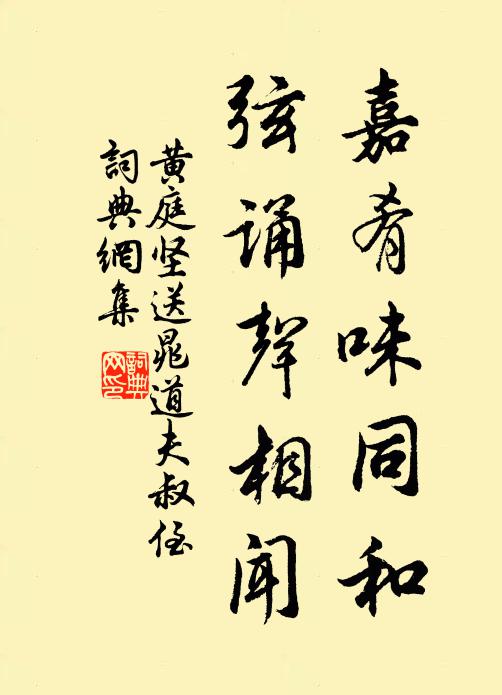 嘉肴味同和
弦诵声相闻
黄庭坚送晁道夫叔侄
詞典網集
詞典网印